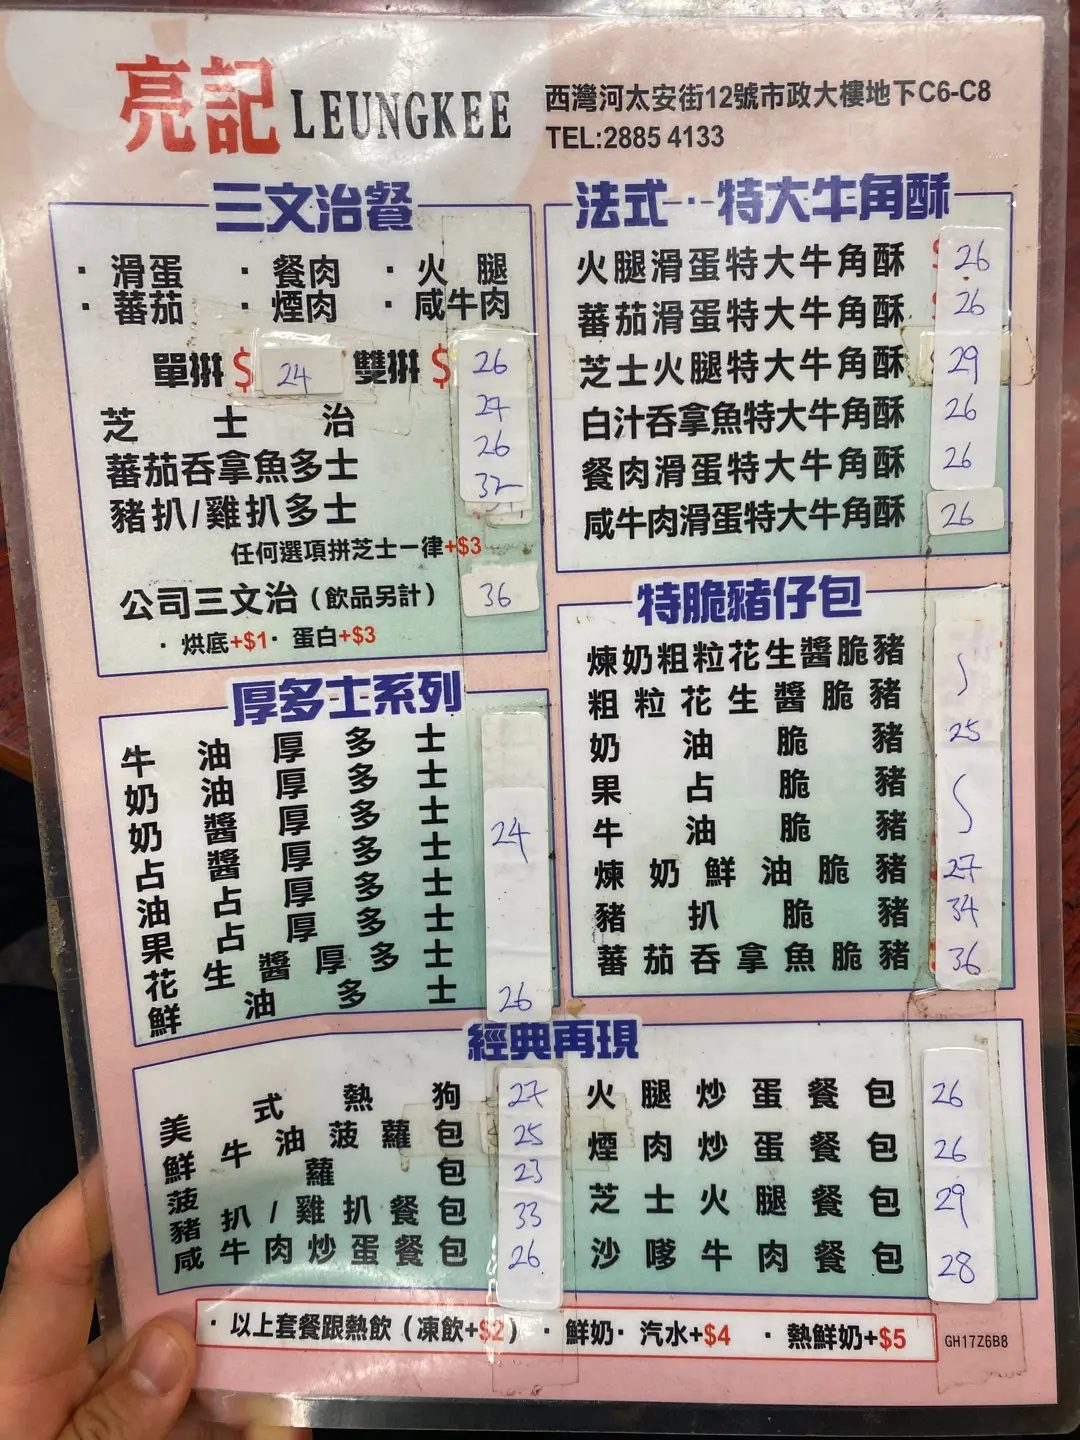 亮記 LEUNGKEE
西灣河太安街12號市政大樓地下C6-C8
TEL:2885 4133
三文治餐
· 滑蛋 · 餐肉 · 火腿
· 蕃茄 · 煙肉 · 咸牛肉
單拼$ 24 雙拼$ 26
芝士治 27
蕃茄吞拿魚多士 26
豬扒/雞扒多士 32
任何選項拼芝士一律+$3
公司三文治(飲品另計) 36
· 烘底+$1· 蛋白+$3
法式··特大牛角酥
火腿滑蛋特大牛角酥 26
蕃茄滑蛋特大牛角酥 26
芝士火腿特大牛角酥 29
白汁吞拿魚特大牛角酥 26
餐肉滑蛋特大牛角酥 26
咸牛肉滑蛋特大牛角酥 26
厚多士系列
牛油厚多士
奶油厚多士
奶醬厚多士 24
占醬厚多士
油占厚多士
果占厚多士
花生醬厚多士
鮮油多士 26
特脆豬仔包
煉奶粗粒花生醬脆豬
粗粒花生醬脆豬
奶油脆豬 25
果占脆豬
牛油脆豬
煉奶鮮油脆豬 27
豬扒脆豬 34
蕃茄吞拿魚脆豬 36
經典再現
美式熱狗 27
鮮牛油菠蘿包 25
菠蘿包 23
豬扒/雞扒餐包 33
咸牛肉炒蛋餐包 26
火腿炒蛋餐包 26
煙肉炒蛋餐包 26
芝士火腿餐包 29
沙嗲牛肉餐包 28
· 以上套餐跟熱飲(凍飲+$2) · 鮮奶· 汽水+$4 · 熱鮮奶+$5
GH17Z6B8